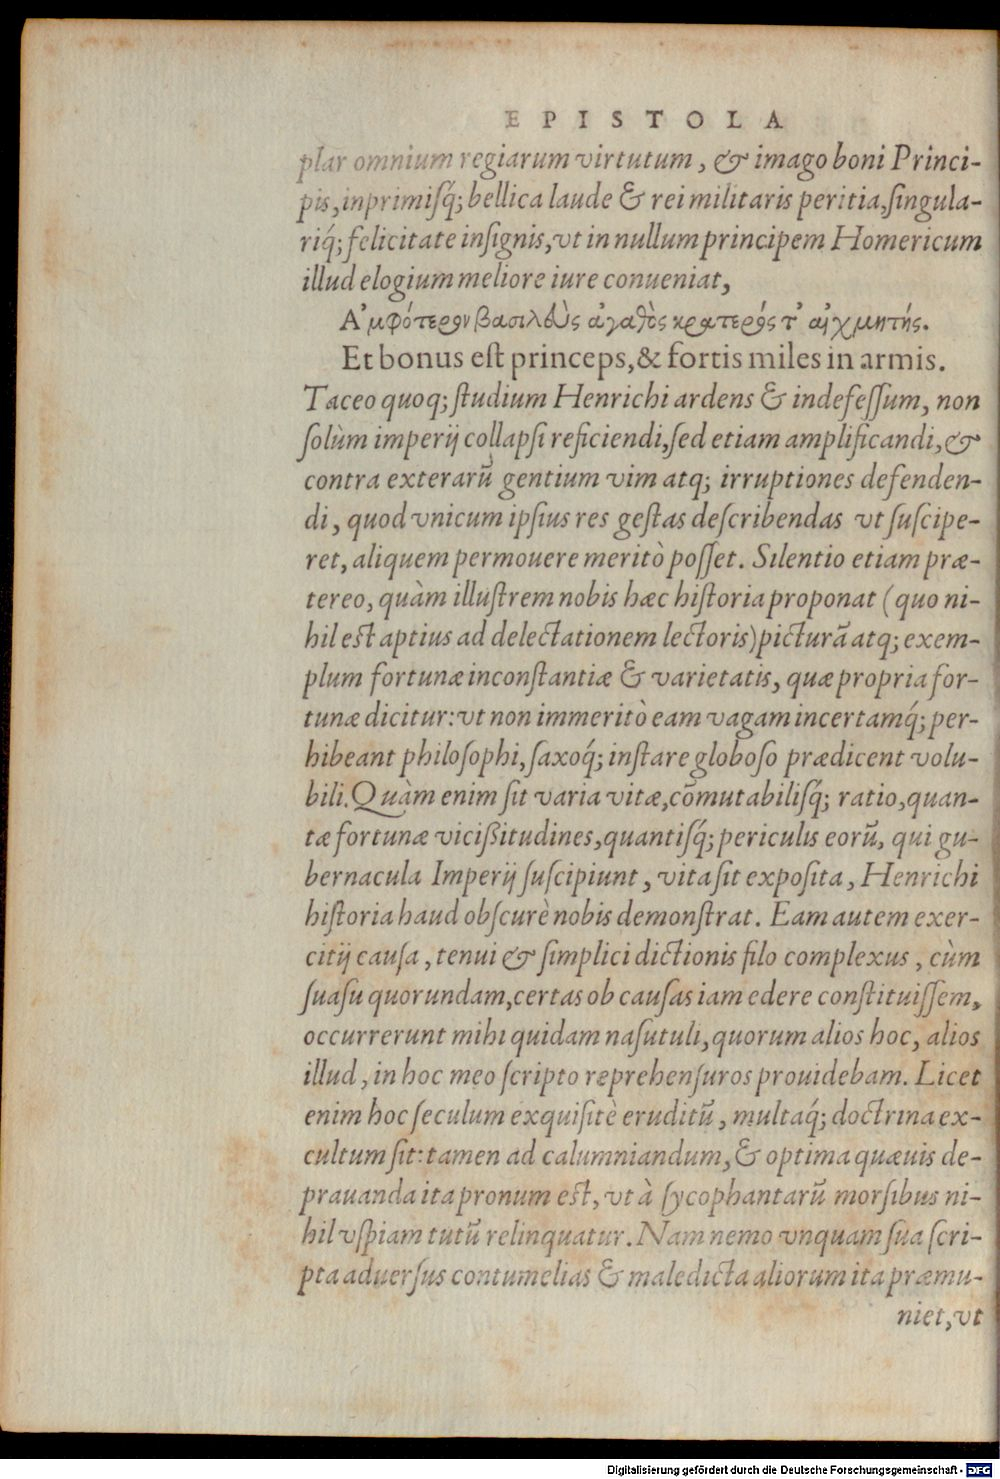 EPISTOLA
plar omnium regiarum virtutum, & imago boni Princi-
pis, inprimiſq́; bellica laude & rei militaris peritia, ſingula-
riq́; felicitate inſignis, vt in nullum principem Homericum
illud elogium meliore iure conueniat,
Α᾽μφότερον βασιλεὺς ἀγαθὸς κρατερός τ᾽ αἰχμητής.
Et bonus eſt princeps, & fortis miles in armis.
Taceo quoq; ſtudium Henrichi ardens & indefeſſum, non
ſolùm imperij collapſi reficiendi, ſed etiam amplificandi, &
contra exterarū gentium vim atq; irruptiones defenden-
di, quod vnicum ipſius res geſtas deſcribendas vt ſuſcipe-
ret, aliquem permouere meritò poſſet. Silentio etiam præ-
tereo, quàm illuſtrem nobis hæc hiſtoria proponat (quo ni-
hil eſt aptius ad delectationem lectoris) picturā atq; exem-
plum fortunæ inconſtantiæ & varietatis, quæ propria for-
tunæ dicitur: vt non immeritò eam vagam incertamq́; per-
hibeant philoſophi, ſaxoq́; inſtare globoſo prædicent volu-
bili. Quàm enim ſit varia vitæ, cōmutabiliſq́; ratio, quan-
tæ fortunæ viciſsitudines, quantiſq́; periculis eorū, qui gu-
bernacula Imperij ſuſcipiunt, vita ſit expoſita, Henrichi
hiſtoria haud obſcurè nobis demonſtrat. Eam autem exer-
citij cauſa, tenui & ſimplici dictionis filo complexus, cùm
ſuaſu quorundam, certas ob cauſas iam edere conſtituiſſem,
occurrerunt mihi quidam naſutuli, quorum alios hoc, alios
illud, in hoc meo ſcripto reprehenſuros prouidebam. Licet
enim hoc ſeculum exquiſitè eruditū, multaq́; doctrina ex-
cultum ſit: tamen ad calumniandum, & optima quæuis de-
prauanda ita pronum eſt, vt à ſycophantarū morſibus ni-
hil vſpiam tutū relinquatur. Nam nemo vnquam ſua ſcri-
pta aduerſus contumelias & maledicta aliorum ita præmu-
niet, vt
Digitalisierung gefördert durch die Deutsche Forschungsgemeinschaft - DFG